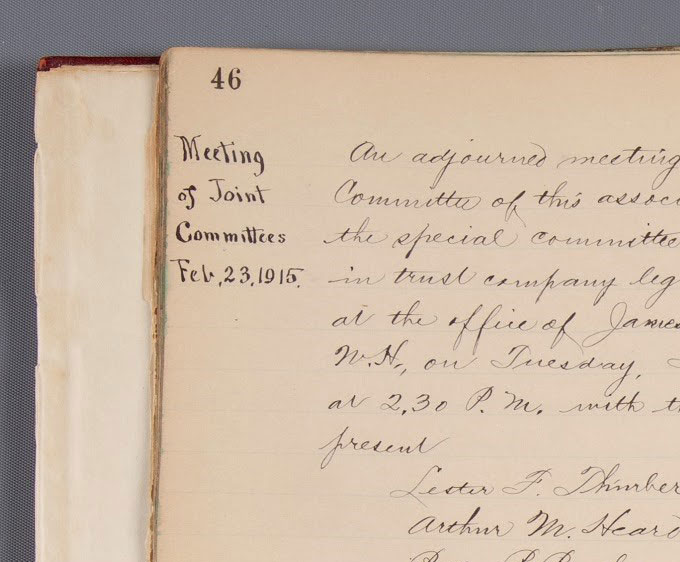 46
Meeting
of Joint
Committees
Feb, 23, 1915.
An adjourned meeting
Committee of this associ
the special committee
in trust company leg
at the office of James
N.H., on Tuesday,
at 2.30 P.M. with th
present
Lester F. Thurber
Arthur M. Heard